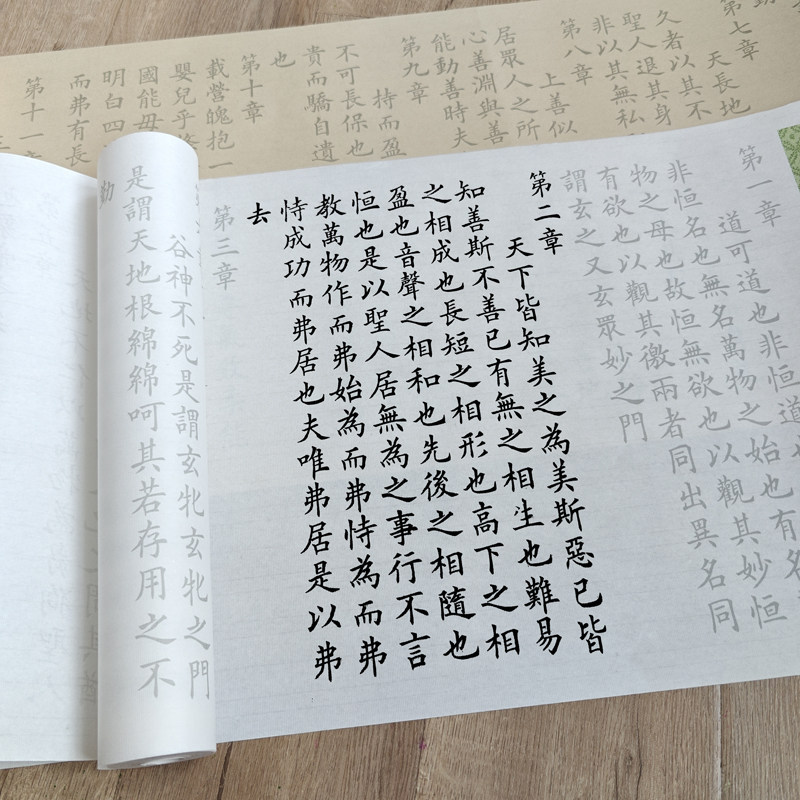 第七章
天長地
久者以其不
聖人退其身
非以其無私
第八章
上善似
居眾人之所
心善淵與善
能動善時夫
第九章
持而盈
不可長保也
貴而驕自遺
也
第十章
載營魄抱一
嬰兒乎
國能毋
明白四
而弗有長
第十一章
第一章
道可道也非恒道也
非恒名也無名萬物之始也有名
物之母也故恒無欲也以觀其妙恒
有欲也以觀其徼兩者同出異名同
謂玄之又玄眾妙之門
第二章
天下皆知美之為美斯惡已皆
知善斯不善已有無之相生也難易
之相成也長短之相形也高下之相
盈也音聲之相和也先後之相隨也
恒也是以聖人居無為之事行不言
教萬物作而弗始為而弗恃為而弗
恃成功而弗居也夫唯弗居是以弗
去
第三章
谷神不死是謂玄牝玄牝之門
是謂天地根綿綿呵其若存用之不